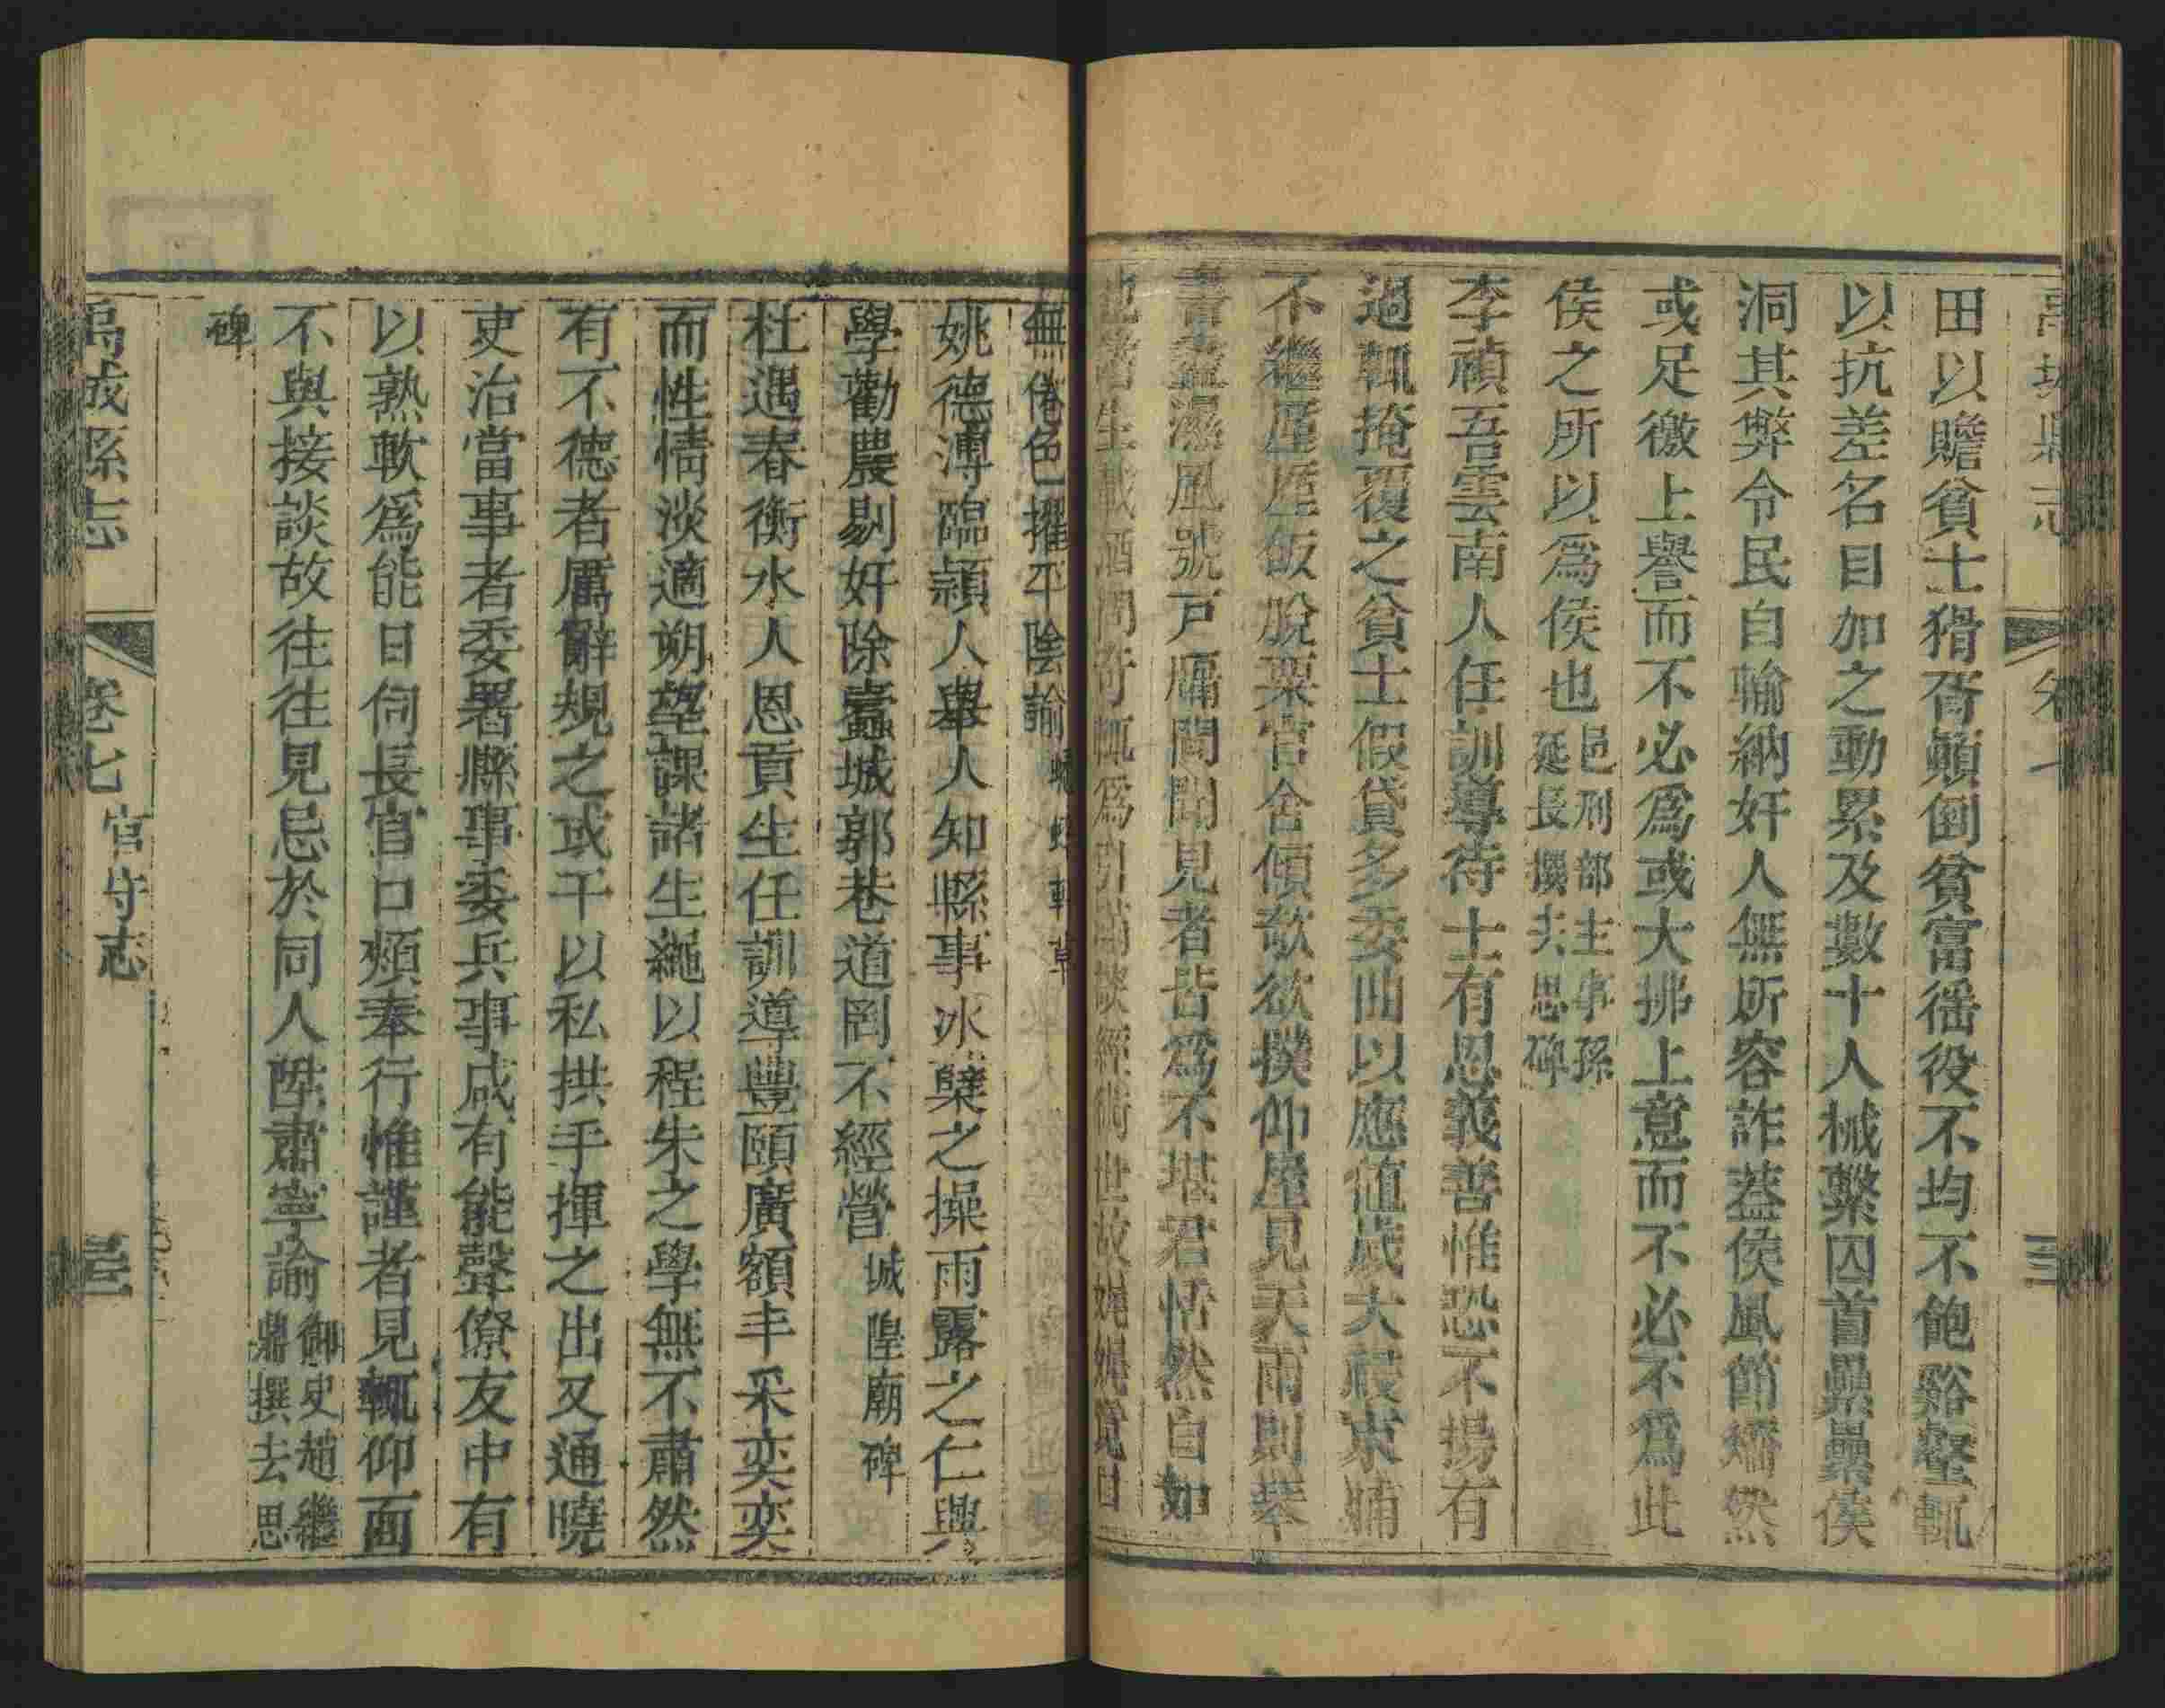 田以贍貧士猾胥顛倒貧富徭役不均不飽谿壑輒
以抗差名目加之動累及數十人械繫囚首纍纍侯
洞其弊令民自輸納奸人無所容詐葢侯風節矯然
或足徼上譽而不必爲或大拂上意而不必不爲此
侯之所以爲侯也邑刑部主事孫
延長撰去思碑
李禎吾雲南人任訓導待士有恩義善惟恐不揚有
過輒掩覆之貧士假貸多委曲以應値歲大祲束脯
不繼厪厪飯脫粟官舍傾欹欲撲仰屋見天雨則琴
書盡濕風號戸牖間聞見者皆爲不堪君恬然自如
也諸生載酒問奇輒爲引滿談經術世故娓娓竟日
無倦色擢平陰諭
姚德溥臨頴人舉人知縣事冰檗之操雨露之仁興
學勸農剔奸除蠹城郭巷道罔不經營城隍廟碑
杜遇春衡水人恩貢生任訓導豐頤廣額丰采奕奕
而性情淡適朔望課諸生繩以程朱之學無不肅然
有不德者厲辭規之或干以私拱手揮之出又通曉
吏治當事者委署縣事委兵事咸有能聲僚友中有
以熟軟爲能日伺長官口頰奉行惟謹者見輒仰面
不與接談故往往見忌於同人陞肅寧諭御史趙繼
鼎撰去思
碑
禹城縣志
卷七 官守志